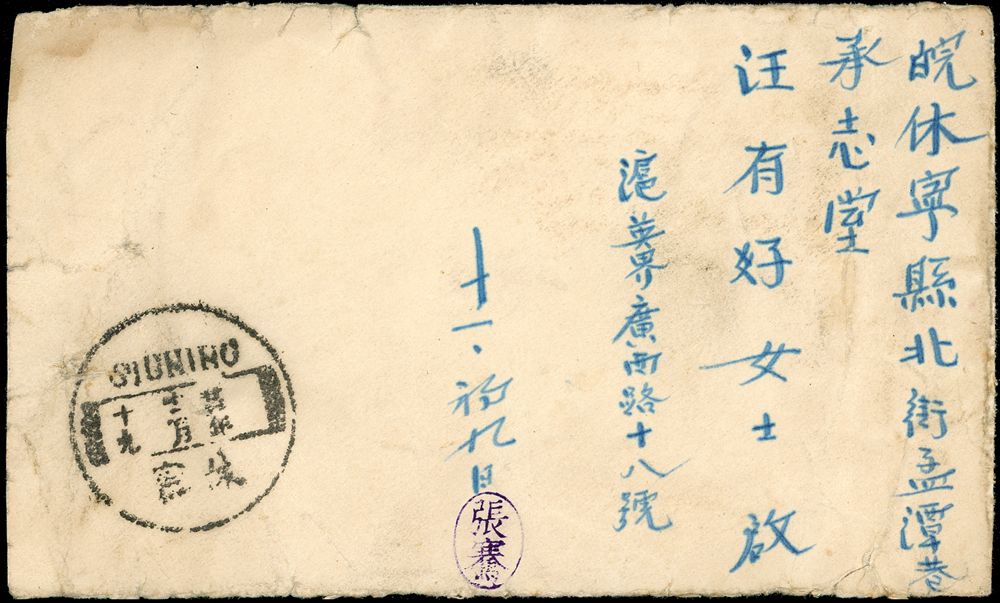 皖休寧縣北街孟潭巷
承志堂
汪有好女士啟
滬英界廣西路十八號
十一、初九日
張
SIUNING
十二月
十九
休寧